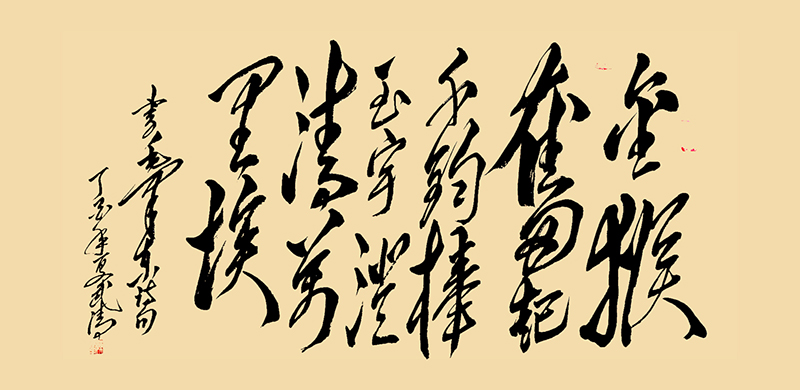 金猴
奮起
千鈞棒
玉宇澄
清萬
里埃
書毛澤東詩句
年夏